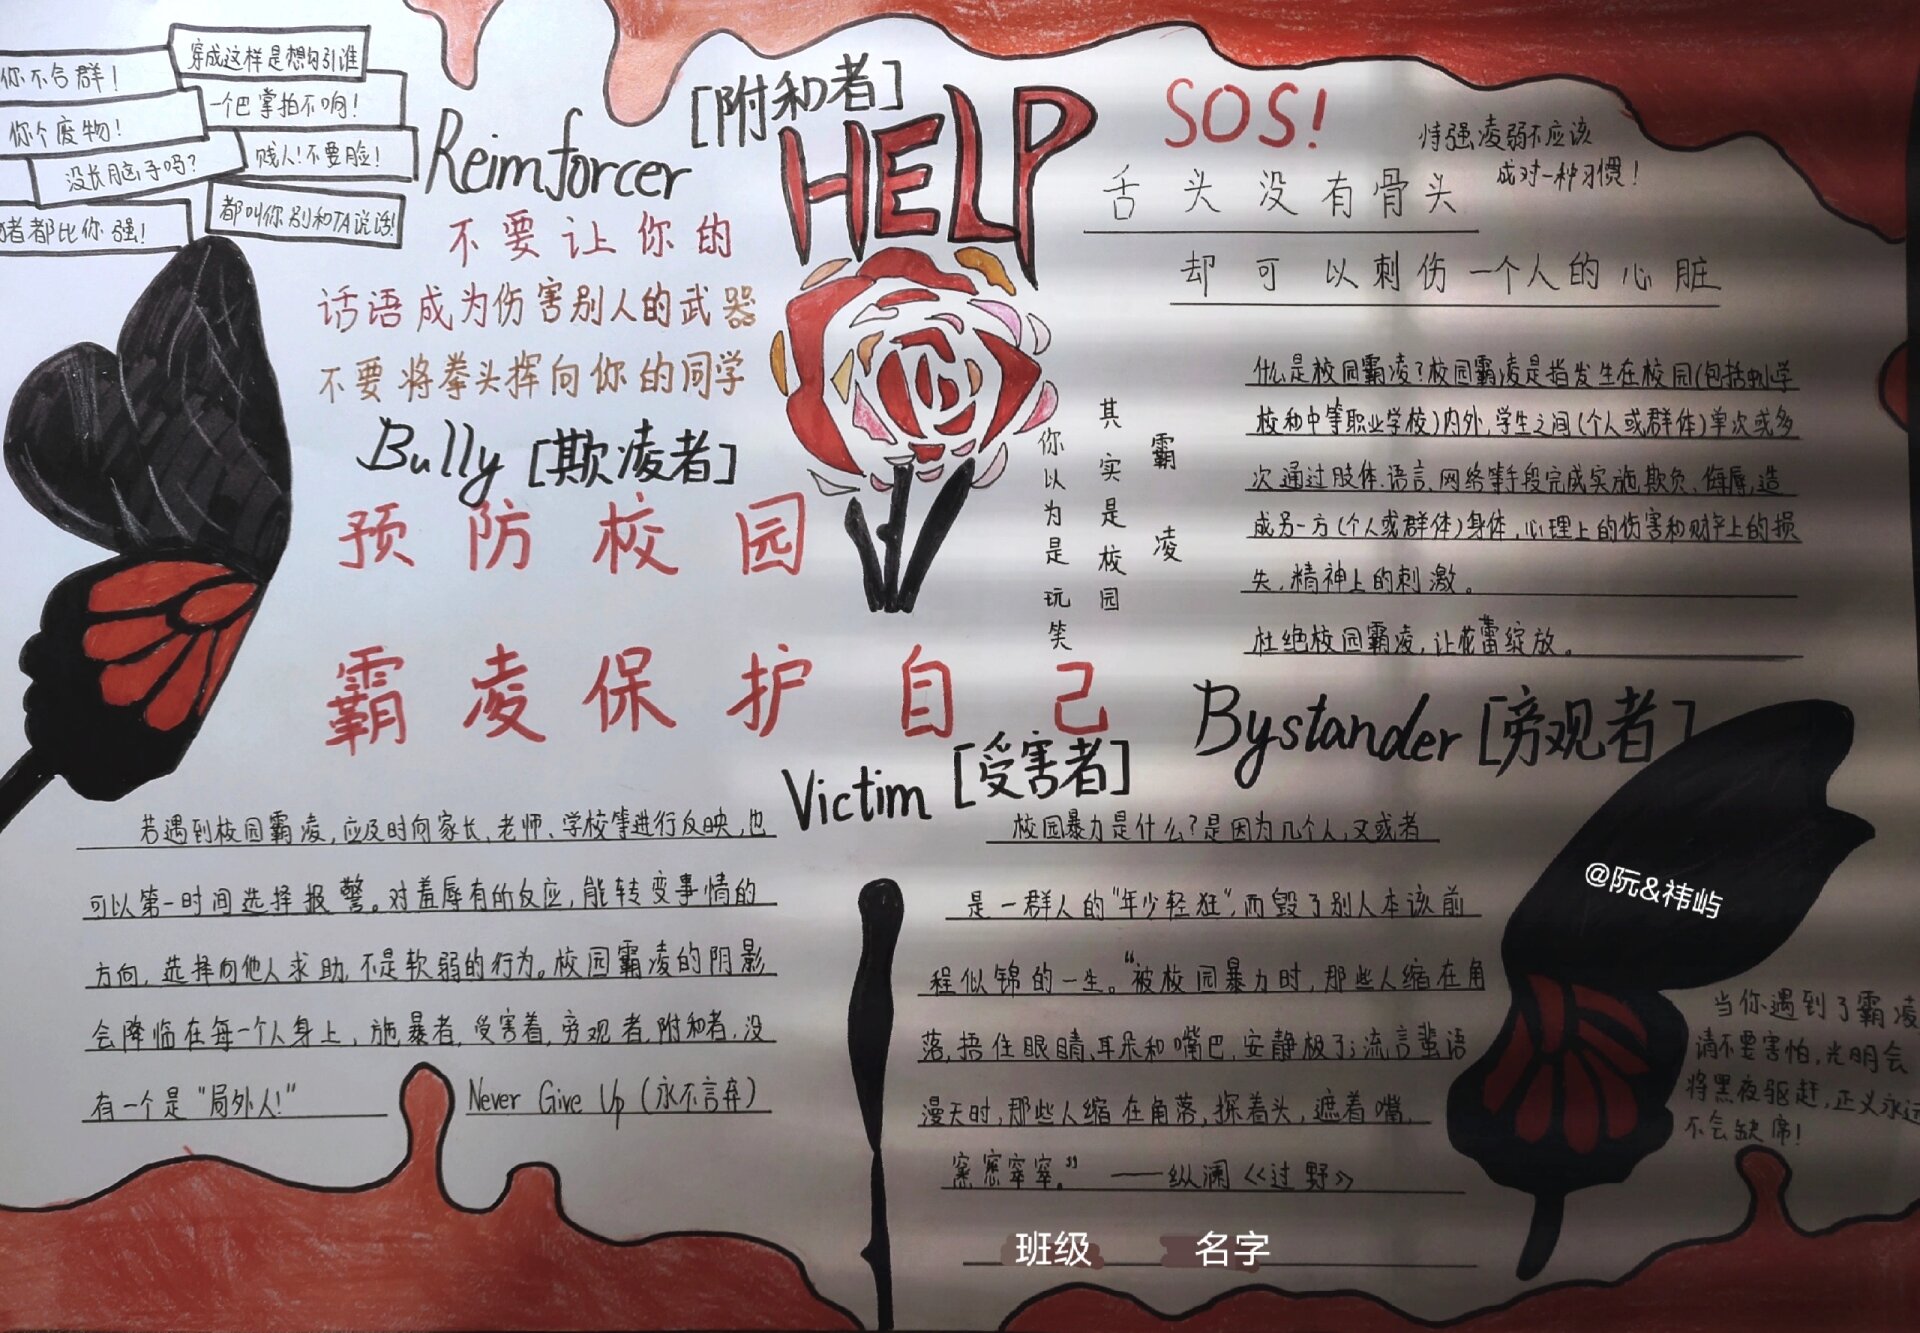 你不合群！
穿成这样是想勾引谁
一个巴掌拍不响！
你个废物！
没长脑子吗？
贱人！不要脸！
猪都比你强！
都叫你别和TA说话！
Reimforcer [附和者]
HELP
SOS!
恃强凌弱不应该
成对一种习惯！
舌头没有骨头
却可以刺伤一个人的心脏
不要让你的
话语成为伤害别人的武器
不要将拳头挥向你的同学
Bully [欺凌者]
预防校园
霸凌保护自己
你以为是玩笑
其实是校园
霸凌
什么是校园霸凌？校园霸凌是指发生在校园(包括中小学
校和中等职业学校)内外，学生之间(个人或群体)单次或多
次通过肢体、语言、网络等手段完成实施欺负、侮辱，造
成另一方(个人或群体)身体，心理上的伤害和财产上的损
失，精神上的刺激。
杜绝校园霸凌，让花蕾绽放。
Bystander [旁观者]
Victim [受害者]
若遇到校园霸凌，应及时向家长、老师、学校等进行反映，也
可以第一时间选择报警。对羞辱有所反应，能转变事情的
方向，选择向他人求助，不是软弱的行为。校园霸凌的阴影
会降临在每一个人身上，施暴者，受害着，旁观者，附和者，没
有一个是“局外人！”
Never Give Up (永不言弃)
校园暴力是什么？是因为几个人，又或者
是一群人的“年少轻狂”，而毁了别人本该前
程似锦的一生。“被校园暴力时，那些人缩在角
落，捂住眼睛、耳朵和嘴巴，安静极了；流言蜚语
漫天时，那些人缩在角落，探着头，遮着嘴，
窸窸窣窣。”——纵澜《过野》
@阮&祎屿
当你遇到了霸凌
请不要害怕，光明会
将黑夜驱赶，正义永远
不会缺席！
班级 名字